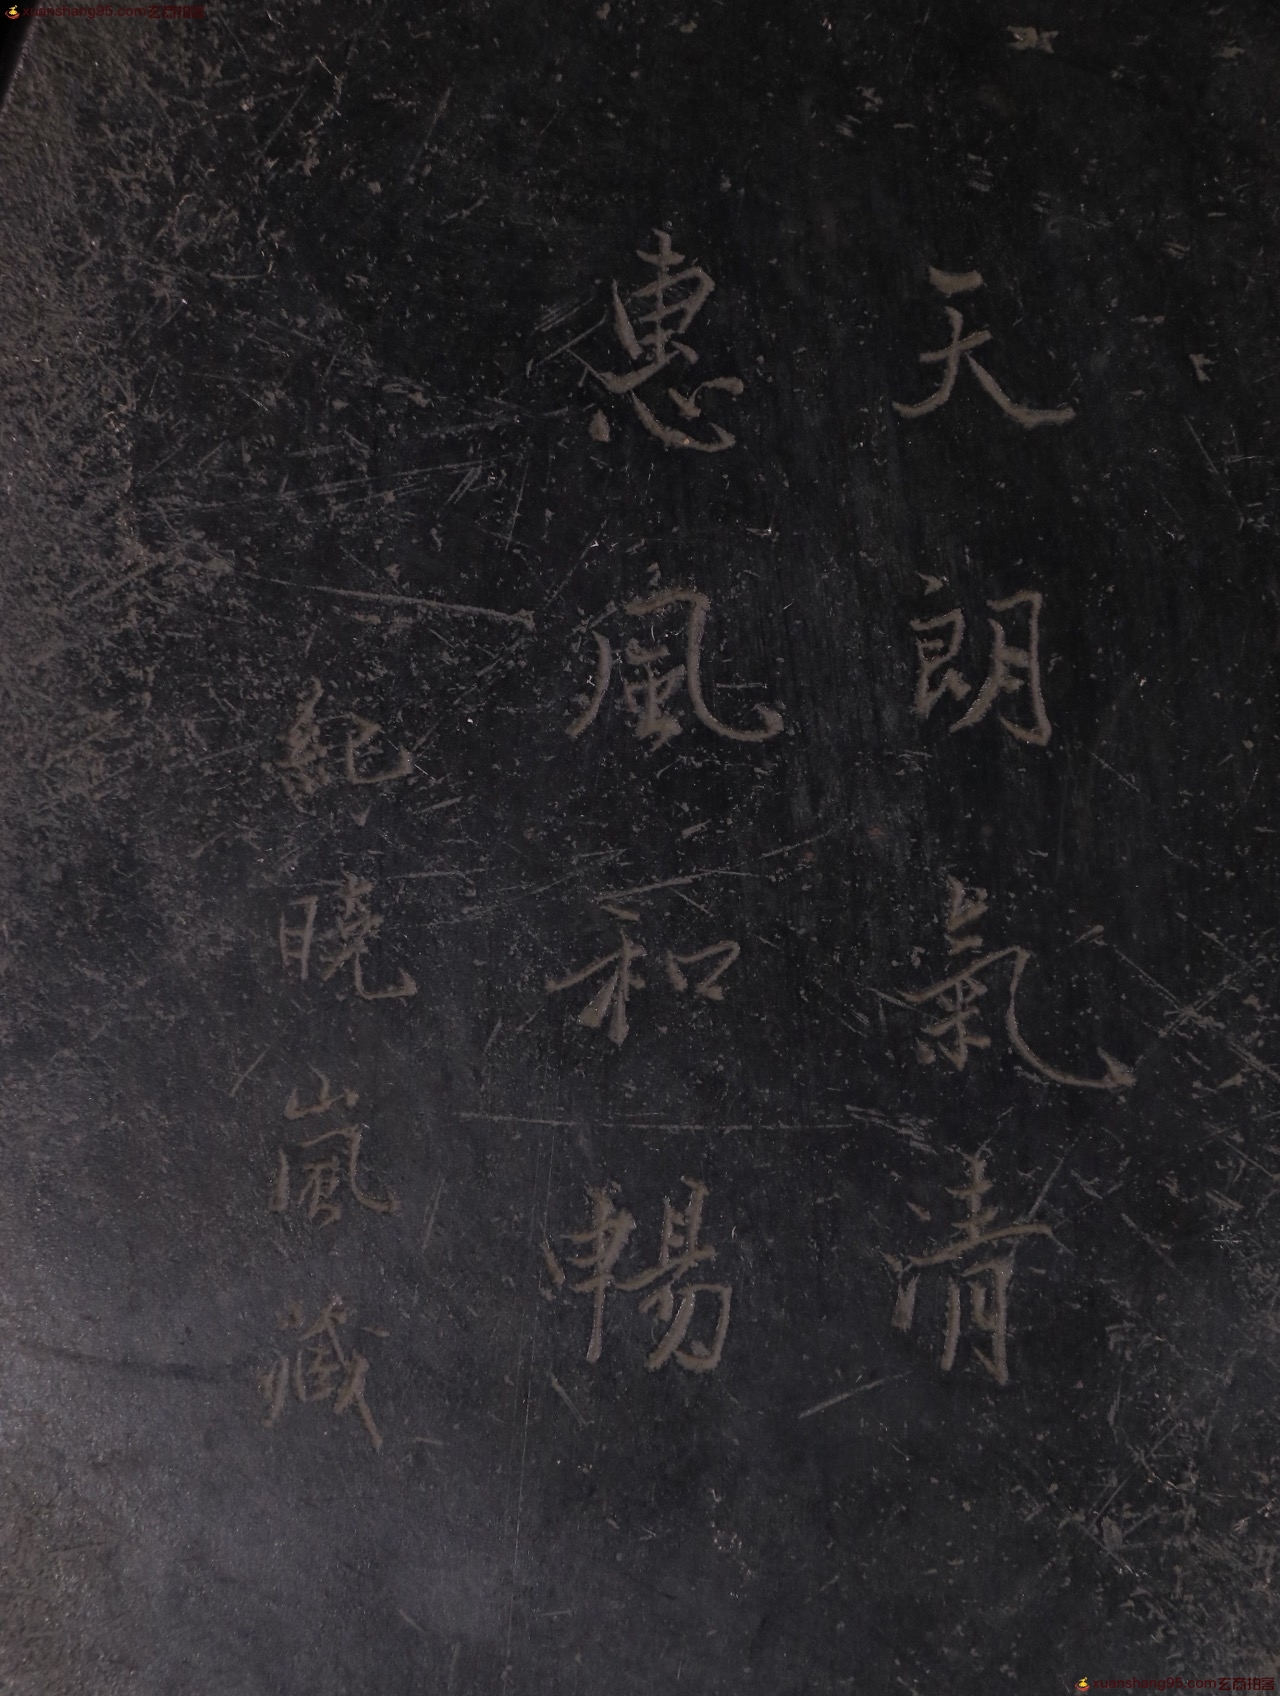 天朗氣清
惠風和暢
紀曉嵐藏
xuanshang95.com玄商拍客
xuanshang95.com玄商拍客